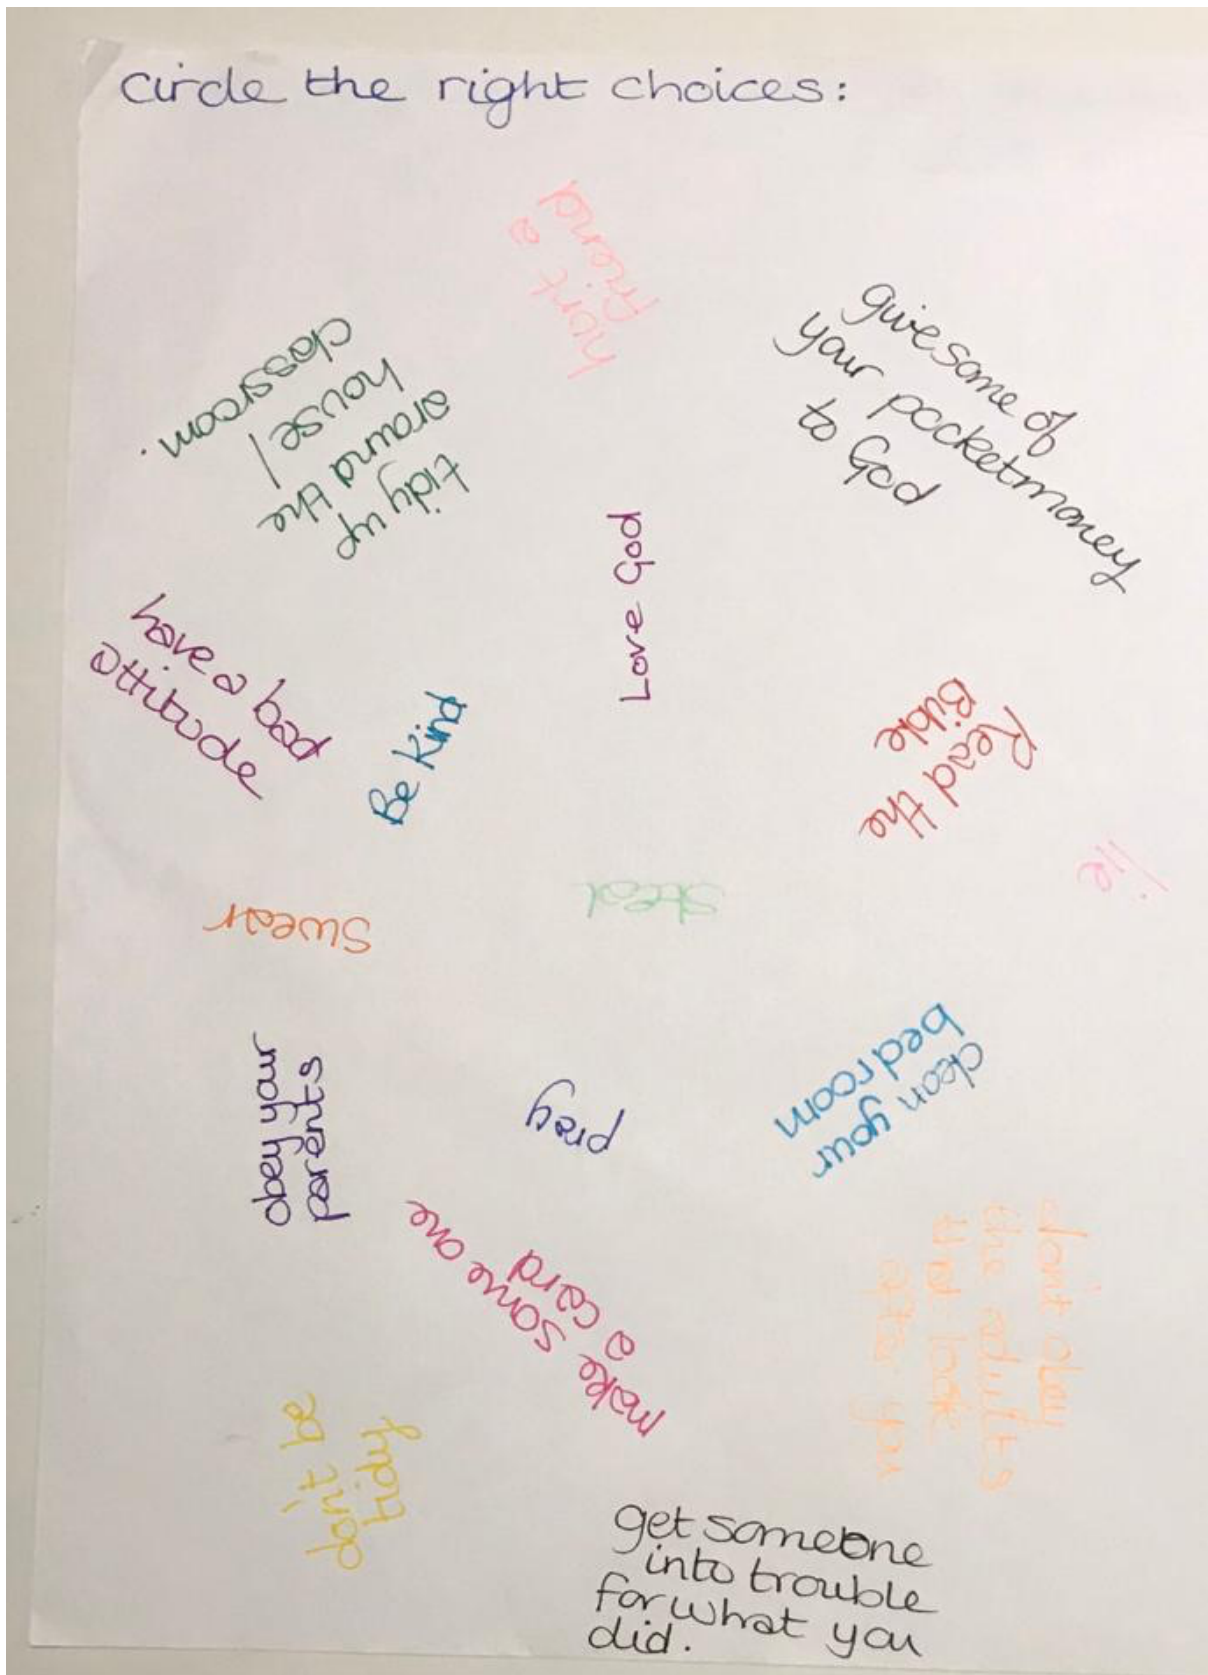 circle the right choices:
hurt a
friend
give some of
your pocketmoney
to God
tidy up
around the
house /
classroom.
Love God
have a bad
attitude
Be kind
Read the
Bible
lie
steal
swear
obey your
parents
pray
clean your
bedroom
make some one
a card
don't obey
the adults
that look
after you
don't be
tidy
get someone
into trouble
for what you
did.